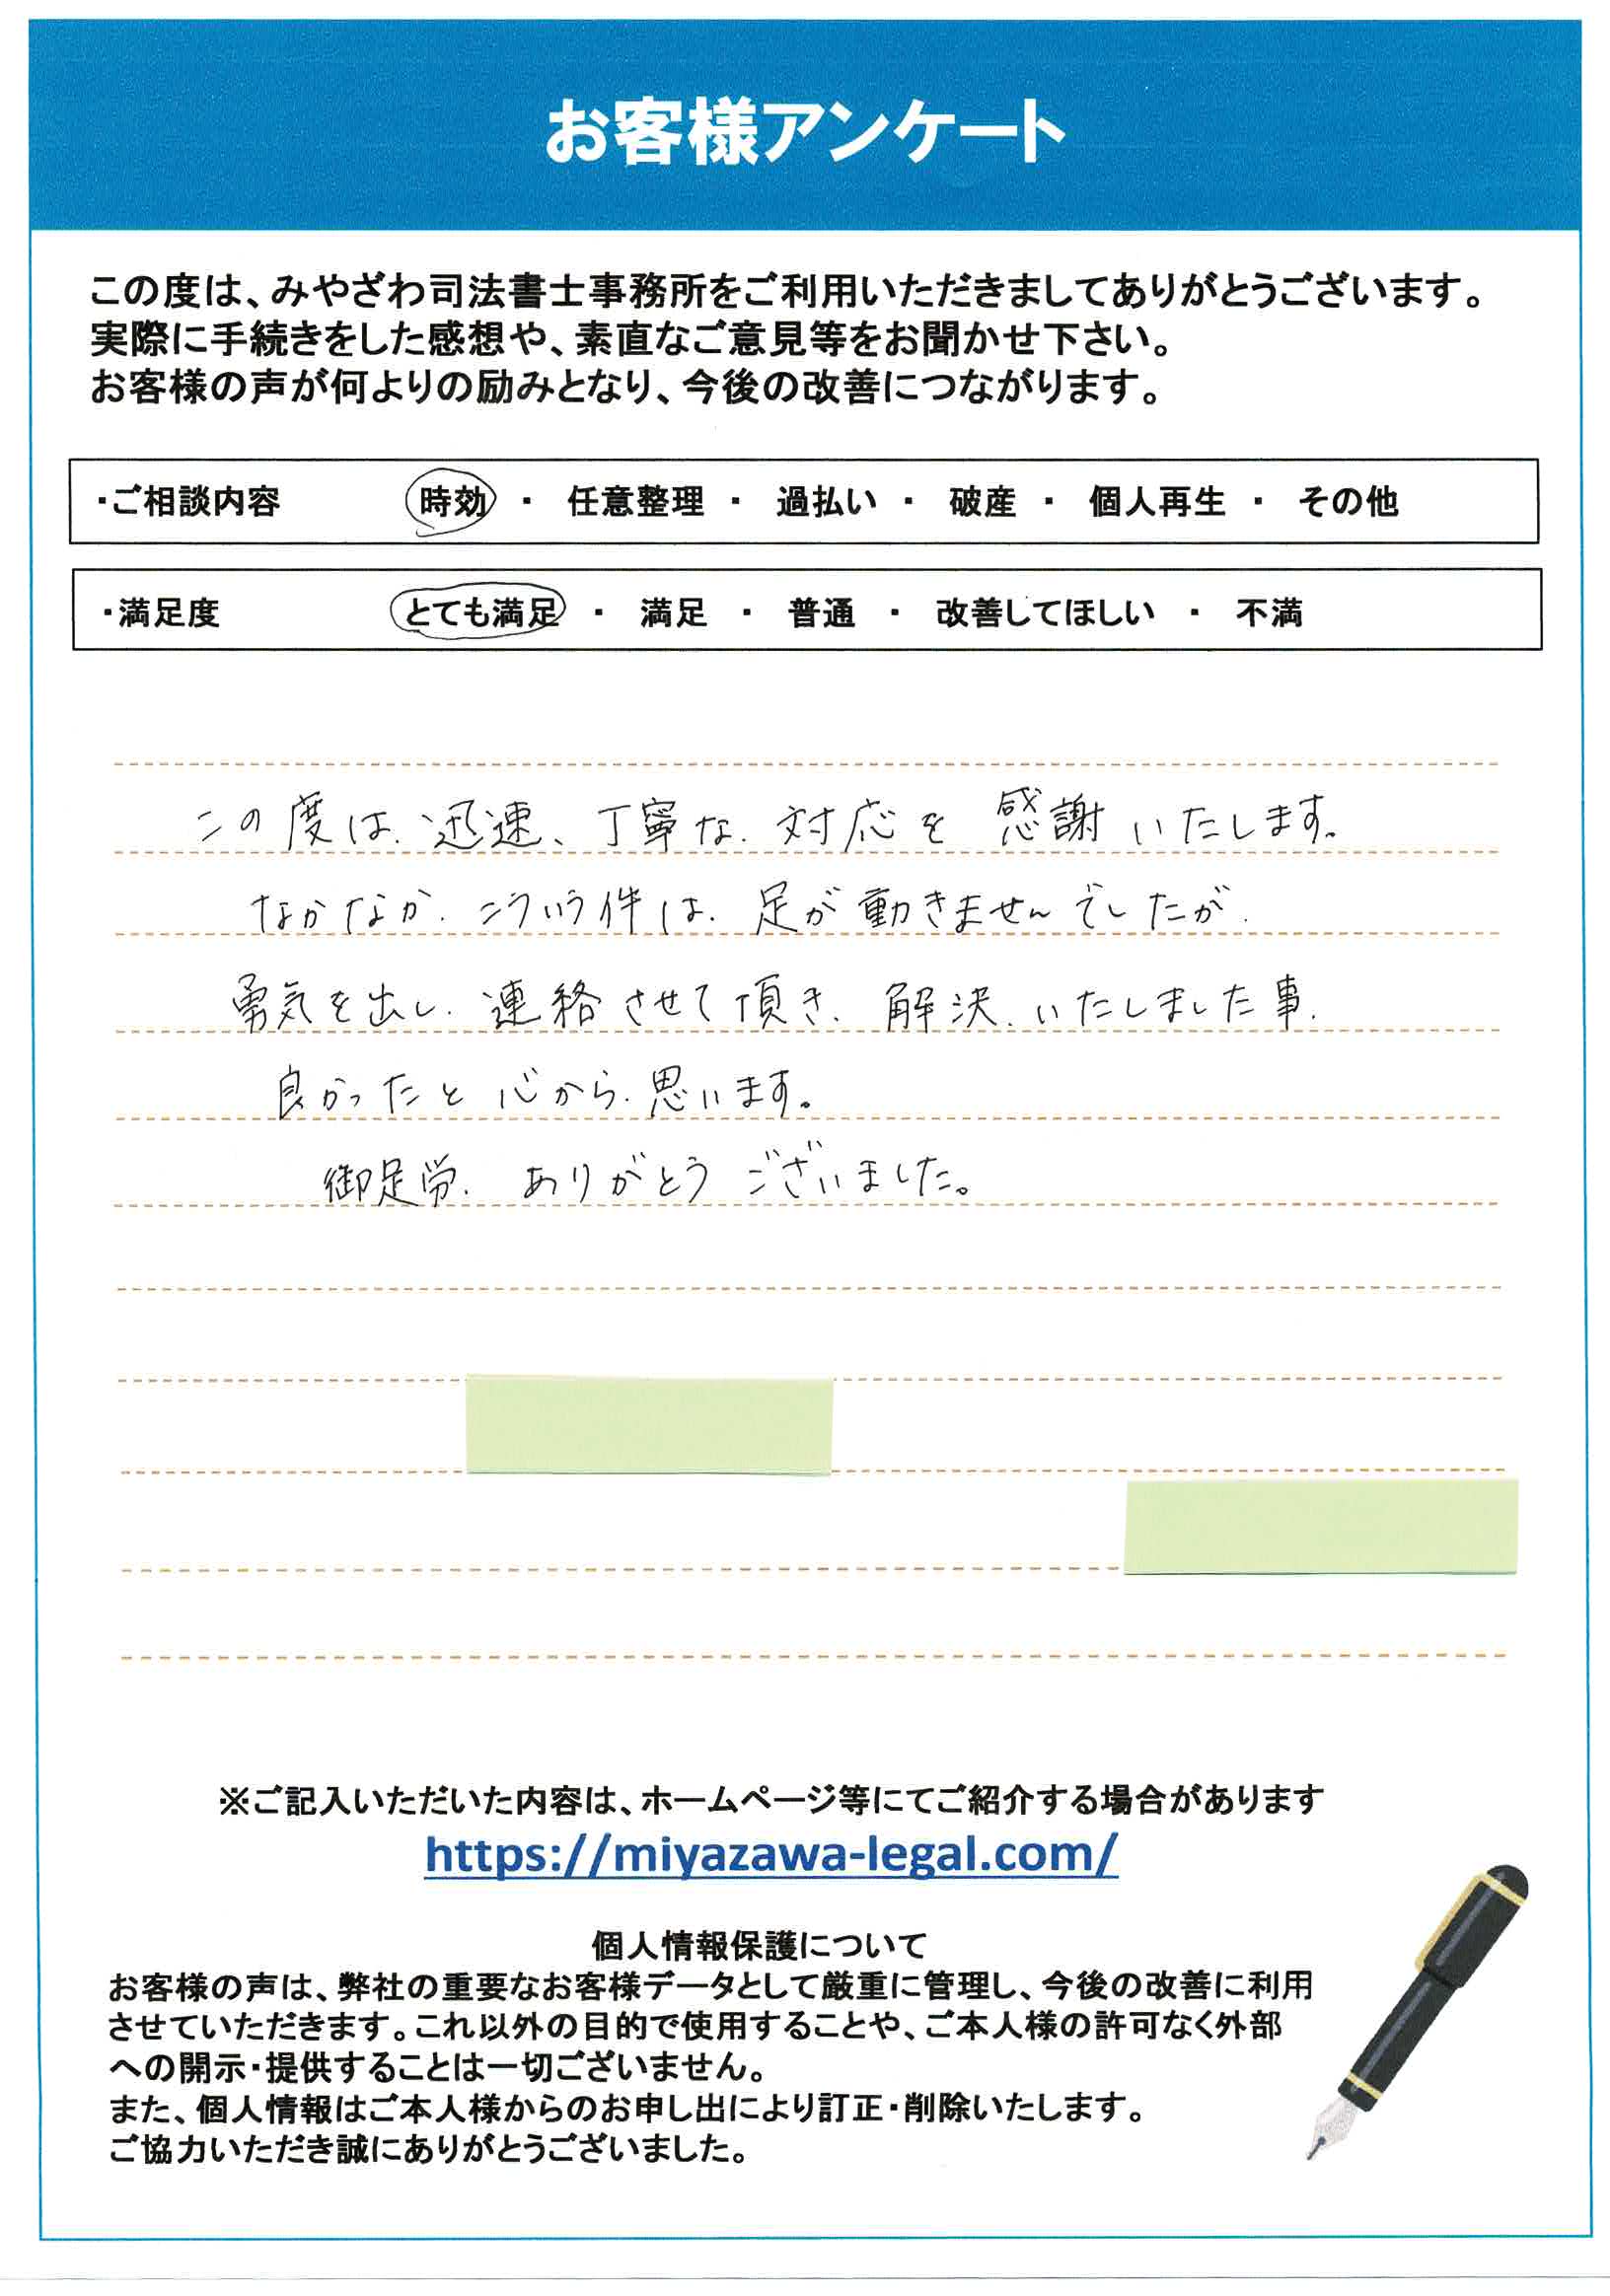 お客様アンケート
この度は、みやざわ司法書士事務所をご利用いただきましてありがとうございます。
実際に手続きをした感想や、素直なご意見等をお聞かせ下さい。
お客様の声が何よりの励みとなり、今後の改善につながります。
・ご相談内容 時効 ・ 任意整理 ・ 過払い ・ 破産 ・ 個人再生 ・ その他
・満足度 とても満足 ・ 満足 ・ 普通 ・ 改善してほしい ・ 不満
この度は、迅速、丁寧な、対応を 感謝いたします。
なかなか、こういう件は、足が動きませんでしたが、
勇気を出し、連絡させて頂き、解決、いたしました事、
良かったと心から、思います。
御足労、ありがとうございました。
※ご記入いただいた内容は、ホームページ等にてご紹介する場合があります
https://miyazawa-legal.com/
個人情報保護について
お客様の声は、弊社の重要なお客様データとして厳重に管理し、今後の改善に利用
させていただきます。これ以外の目的で使用することや、ご本人様の許可なく外部
への開示・提供することは一切ございません。
また、個人情報はご本人様からのお申し出により訂正・削除いたします。
ご協力いただき誠にありがとうございました。